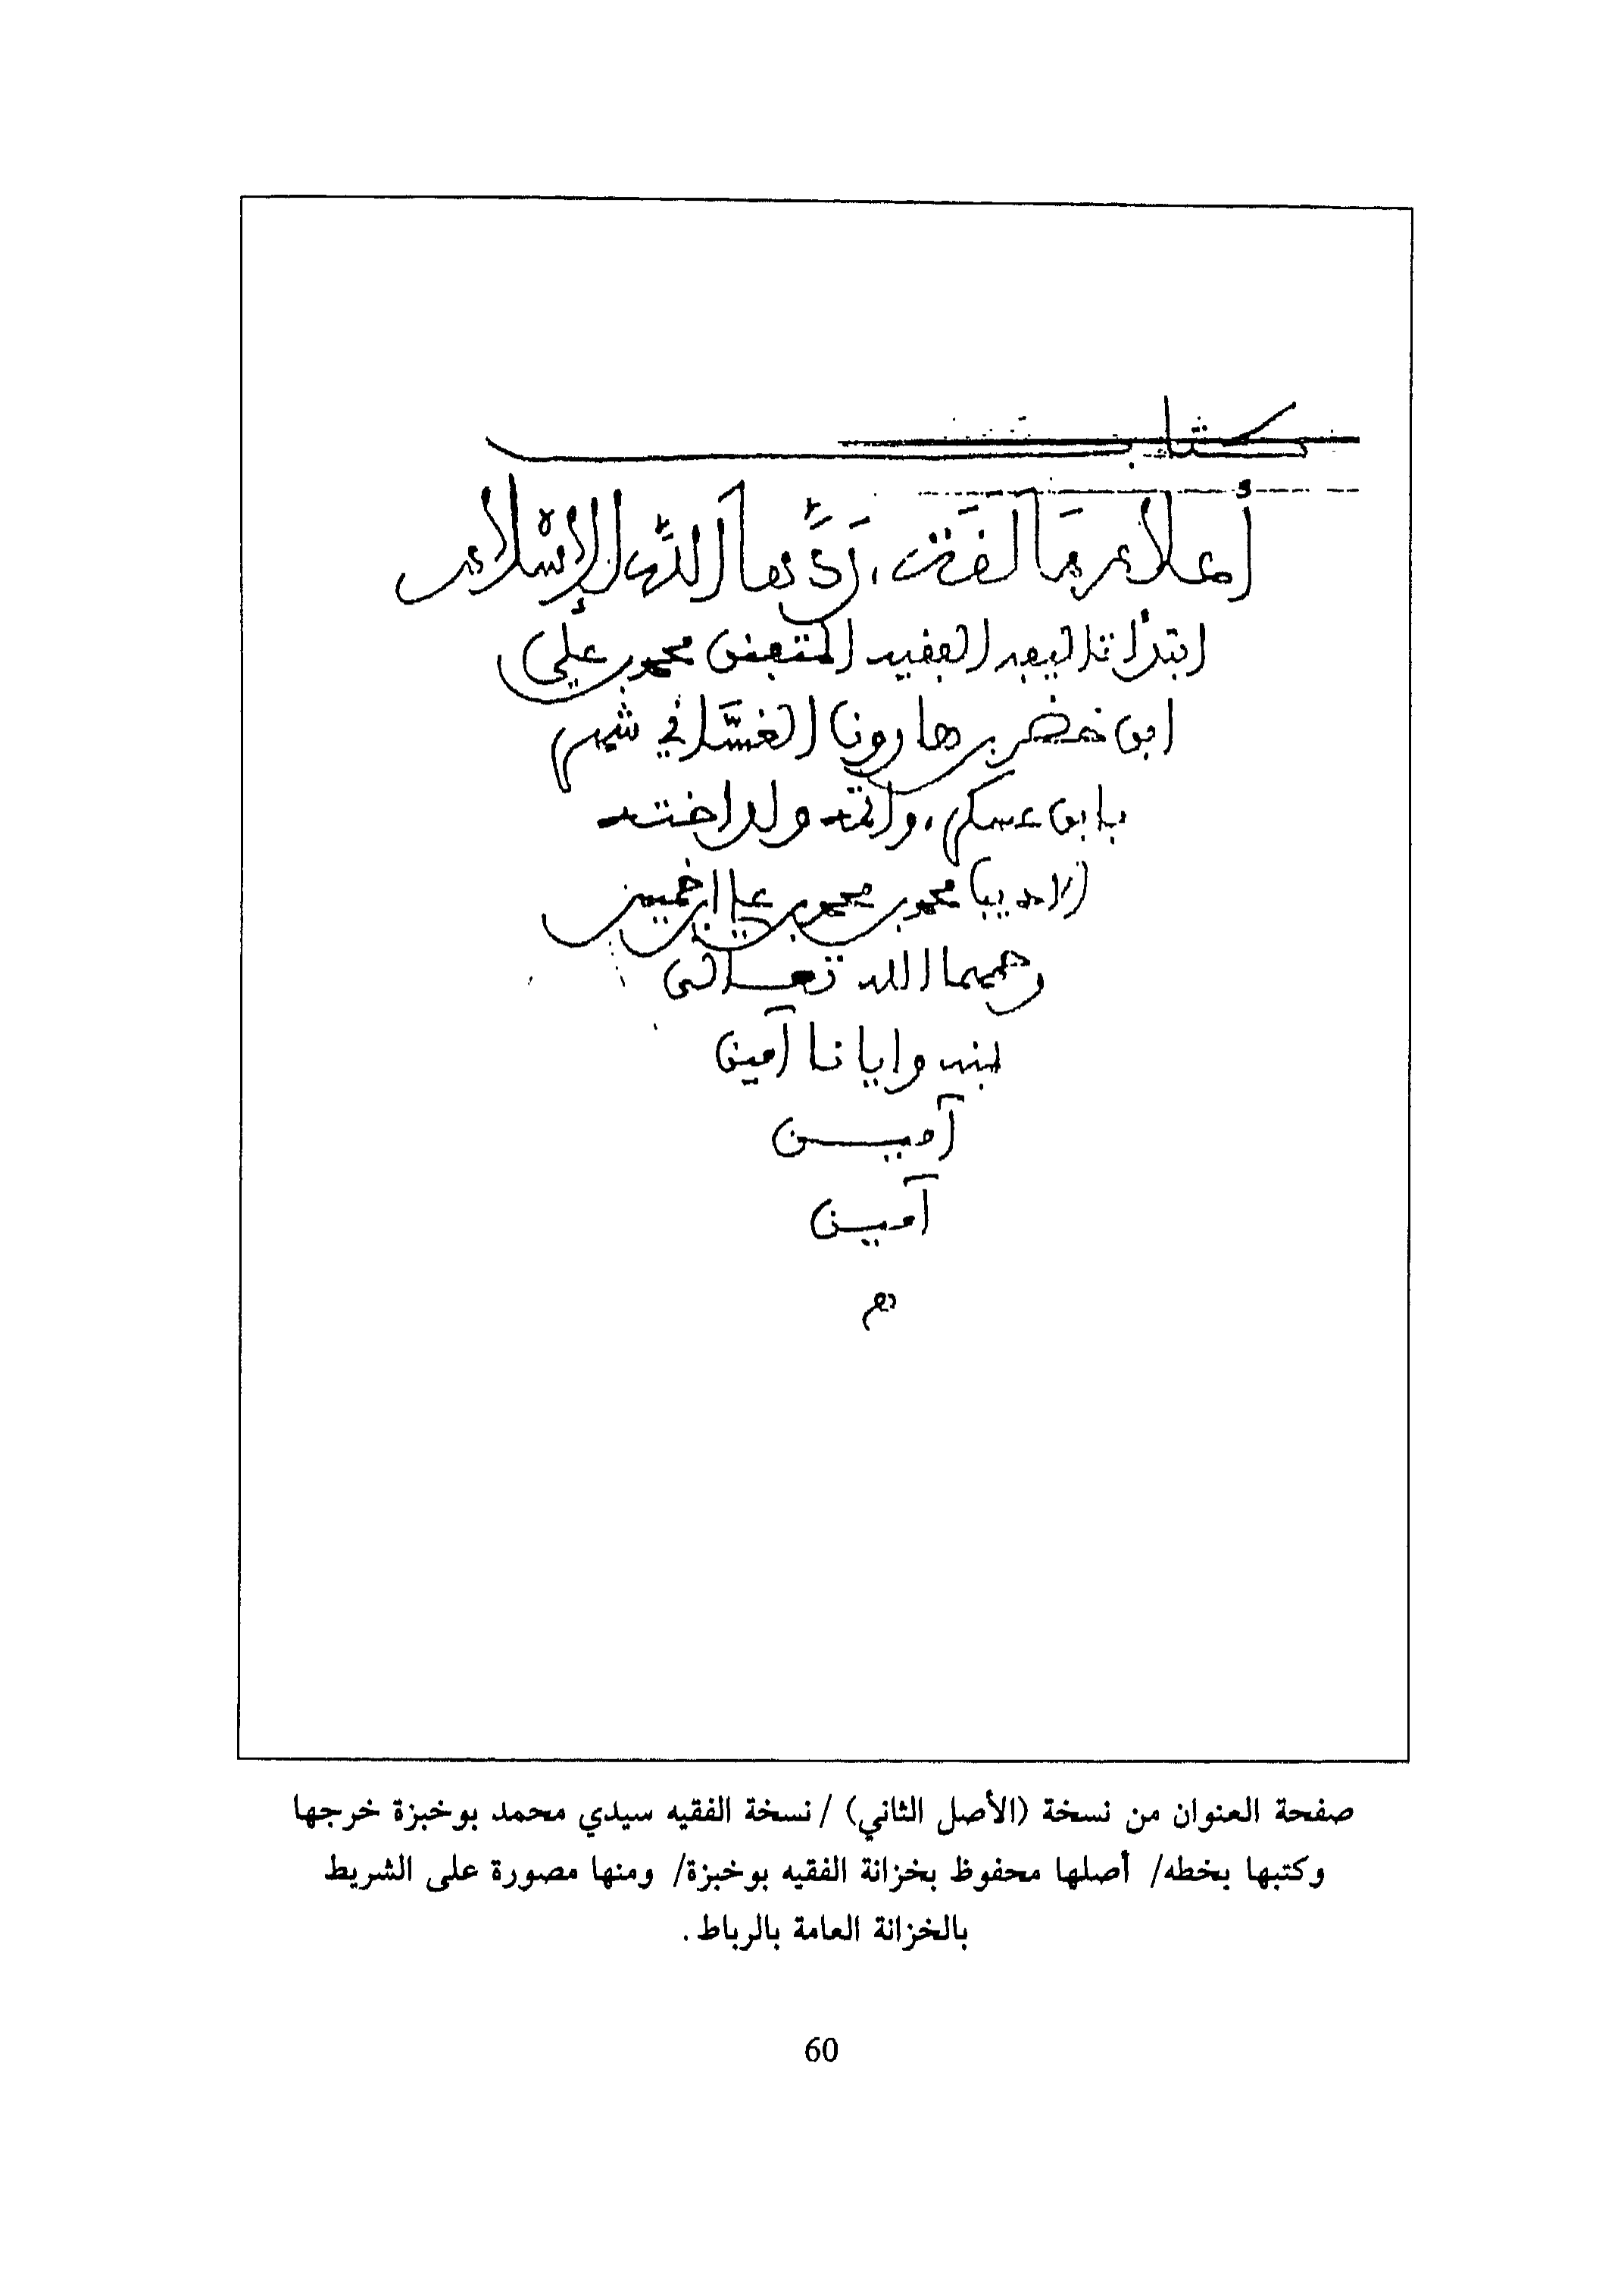 كتاب
أعلام مالقة، ردَّها اللّه للإسْلام
ابتدأ تاليفه الفقيه المتفنن محمد بن علي
ابن خضر بن هارون الغسَّاني شهر
بابن عسكر، وأتمه ولد اخته
الاديب محمد بن محمد بن علي ابن خميس
رحمهما الله تعالى
بمنه وايانا آمين
آميـــن
آميـن
صفحة العنوان من نسخة (الأصل الثاني) / نسخة الفقيه سيدي محمد بوخبزة خرجها
وكتبها بخطه/ أصلها محفوظ بخزانة الفقيه بوخبزة/ ومنها مصورة على الشريط
بالخزانة العامة بالرباط.
60